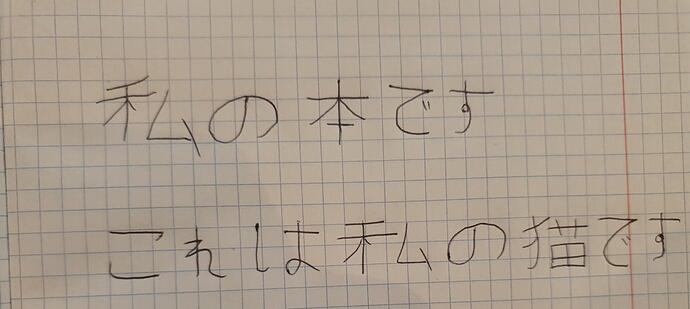 私の本です
これは私の猫です